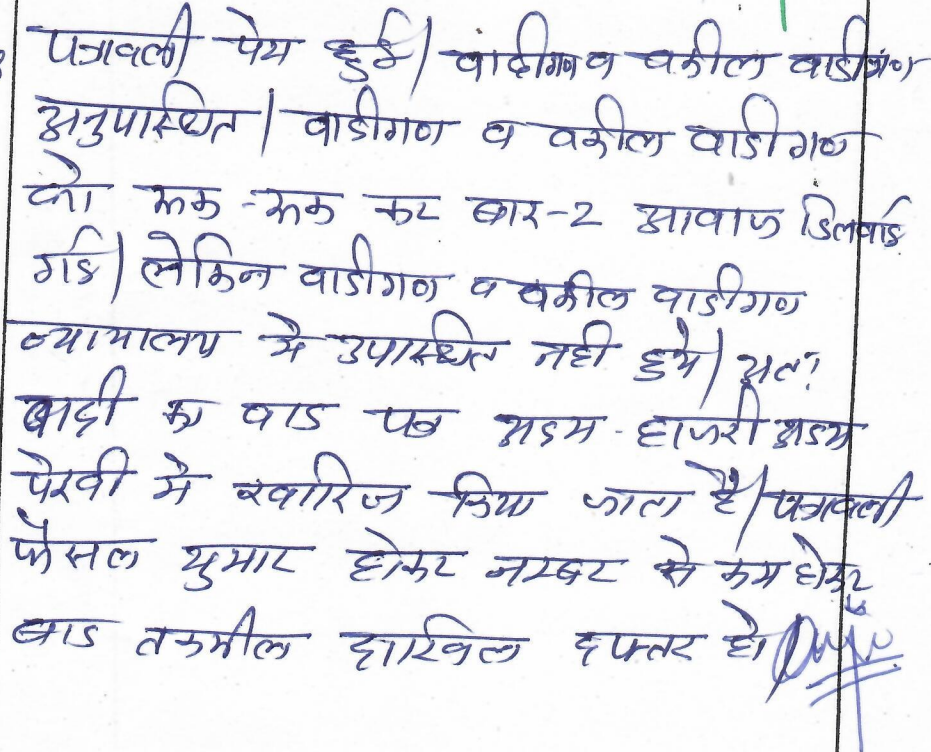 पत्रावली पेश हुई। वादीगण व वकील वादीगण
अनुपास्थित। वादीगण व वकील वादीगण
को रूक-रूक कर बार-2 आवाज दिलवाई
गई। लेकिन वादीगण व वकील वादीगण
न्यायालय मे उपास्थित नही हुये। अतः
वादी का वाद पत्र अदम-हाजरी अदम
पैरवी मे खारिज किया जाता है। पत्रावली
फैसल शुमार होकर नम्बर से कम होकर
बाद तकमील दाखिल दफ्तर हो।